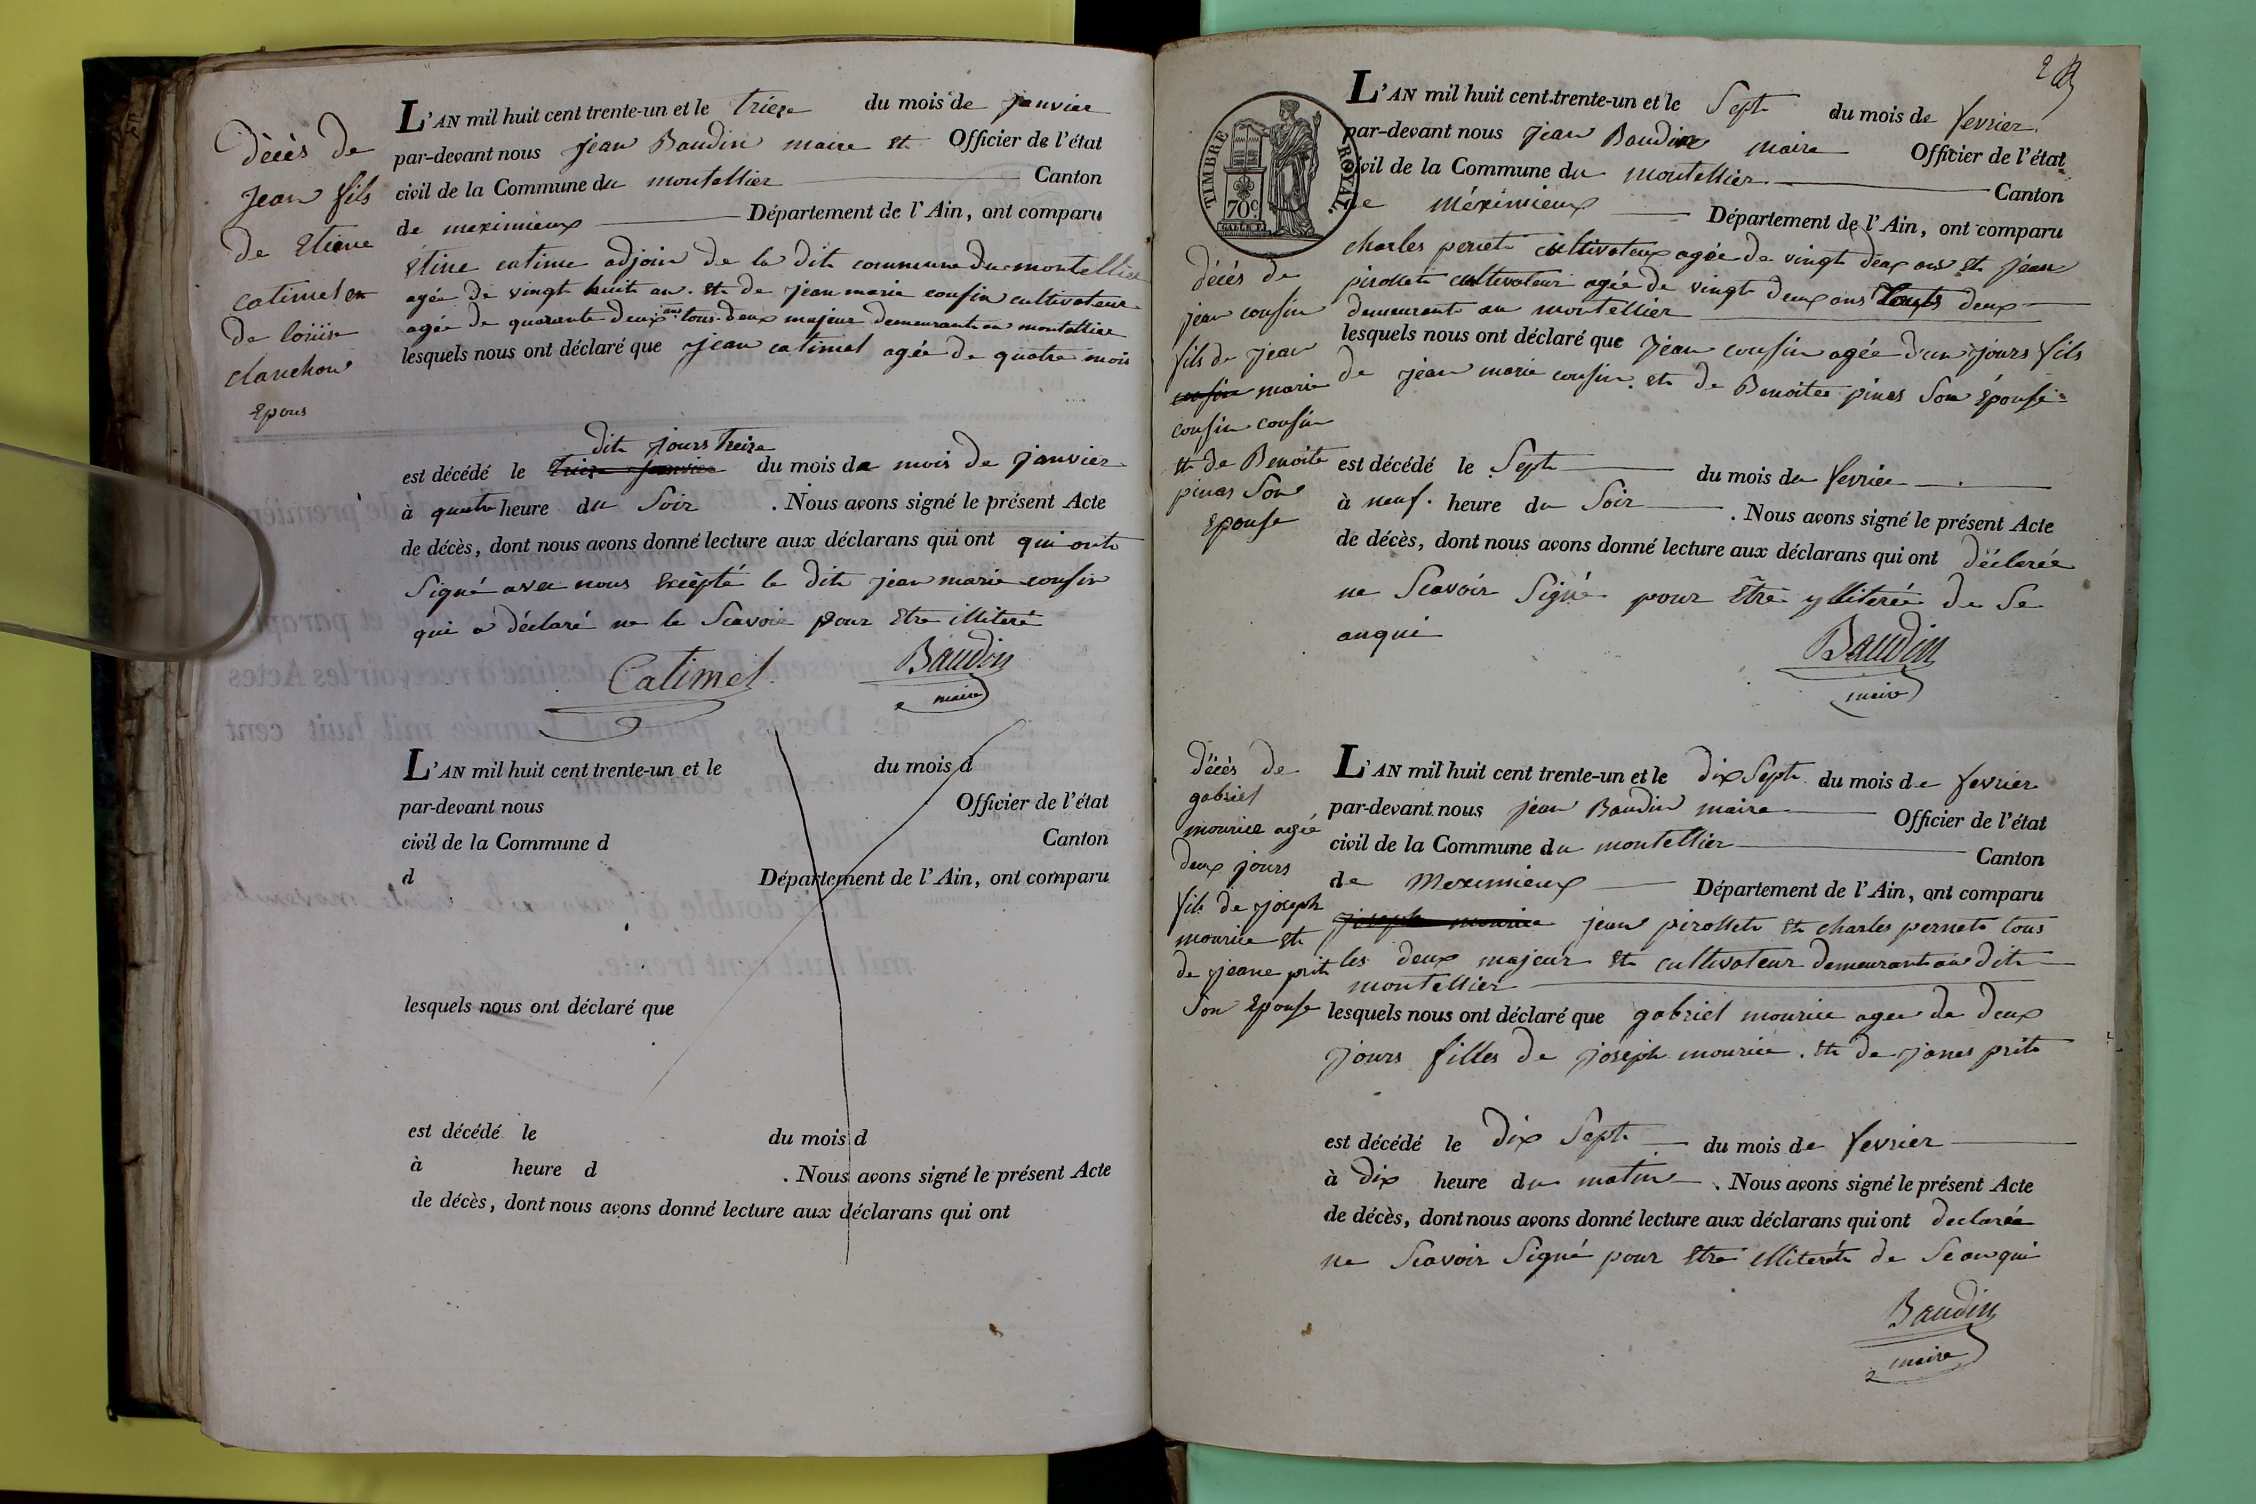 décès de
Jean fils
de Etiene
catimel et
de loüise
clanchon
Epous
L'AN mil huit cent trente-un et le trieze du mois de janvier
par-devant nous jean Baudin maire et Officier de l'état
civil de la Commune du montellier Canton
de meximieux Département de l'Ain, ont comparu
Etine catime adjoin de la dite commune du montellier
agée de vingt huit an. et de jean marie cousin cultivateur
agée de quarante deux ans tous deux majeur demeurant au montellier
lesquels nous ont déclaré que jean catimel agée de quatre mois
dit jours treize
est décédé le treize janvier du mois de mois de janvier
à quatre heure du Soir . Nous avons signé le présent Acte
de décès, dont nous avons donné lecture aux déclarans qui ont qui ont
Signé avec nous excépté le dit jean marie cousin
qui a déclaré ne le Scavoir pour Etre illiteré
Catimel Baudin
maire
L'AN mil huit cent trente-un et le du mois d
par-devant nous Officier de l'état
civil de la Commune d Canton
d Département de l'Ain, ont comparu
lesquels nous ont déclaré que
est décédé le du mois d
à heure d . Nous avons signé le présent Acte
de décès, dont nous avons donné lecture aux déclarans qui ont
2
TIMBRE ROYAL.
70c
décés de
jean cousin
fils de jean
cousin marie
cousin cousin
et de Benoite
pinas Son
Epouse
L'AN mil huit cent trente-un et le Sept du mois de fevrier
par-devant nous jean Baudin maire Officier de l'état
civil de la Commune du montellier Canton
de méximieux Département de l'Ain, ont comparu
charles pernet cultivateur agée de vingt deux ans et jéan
pirollet cultivateur agée de vingt deux ans touts deux
demeurant au montellier
lesquels nous ont déclaré que jéan cousin agée d'un jours fils
de jean marie cousin et de Benoitee pinas Son épouse
est décédé le Sept du mois de fevrier
à neuf. heure du Soir . Nous avons signé le présent Acte
de décès, dont nous avons donné lecture aux déclarans qui ont déclarée
ne Scavoir Signé pour Etre ylliterée de Se
anqui
Baudin
maire
décès de
gabriel
mourier agée
deux jours
fils de joseph
mourier et
de jeane prit
Son Epouse
L'AN mil huit cent trente-un et le dix Sept du mois de fevrier
par-devant nous jean Baudin maire Officier de l'état
civil de la Commune du montellier Canton
de Meximieux Département de l'Ain, ont comparu
joseph mourier jean pirollet et charles pernet tous
les deux majeur et cultivateur demeurant au dit
montellier
lesquels nous ont déclaré que gabriel mourier agee de deux
jours filles de joseph mourier. et de janes prit
est décédé le dix Sept du mois de fevrier
à dix heure du matin . Nous avons signé le présent Acte
de décès, dont nous avons donné lecture aux déclarans qui ont declarée
ne Scavoir Signé pour Etre illiterét de Se anqui
Baudin
maire